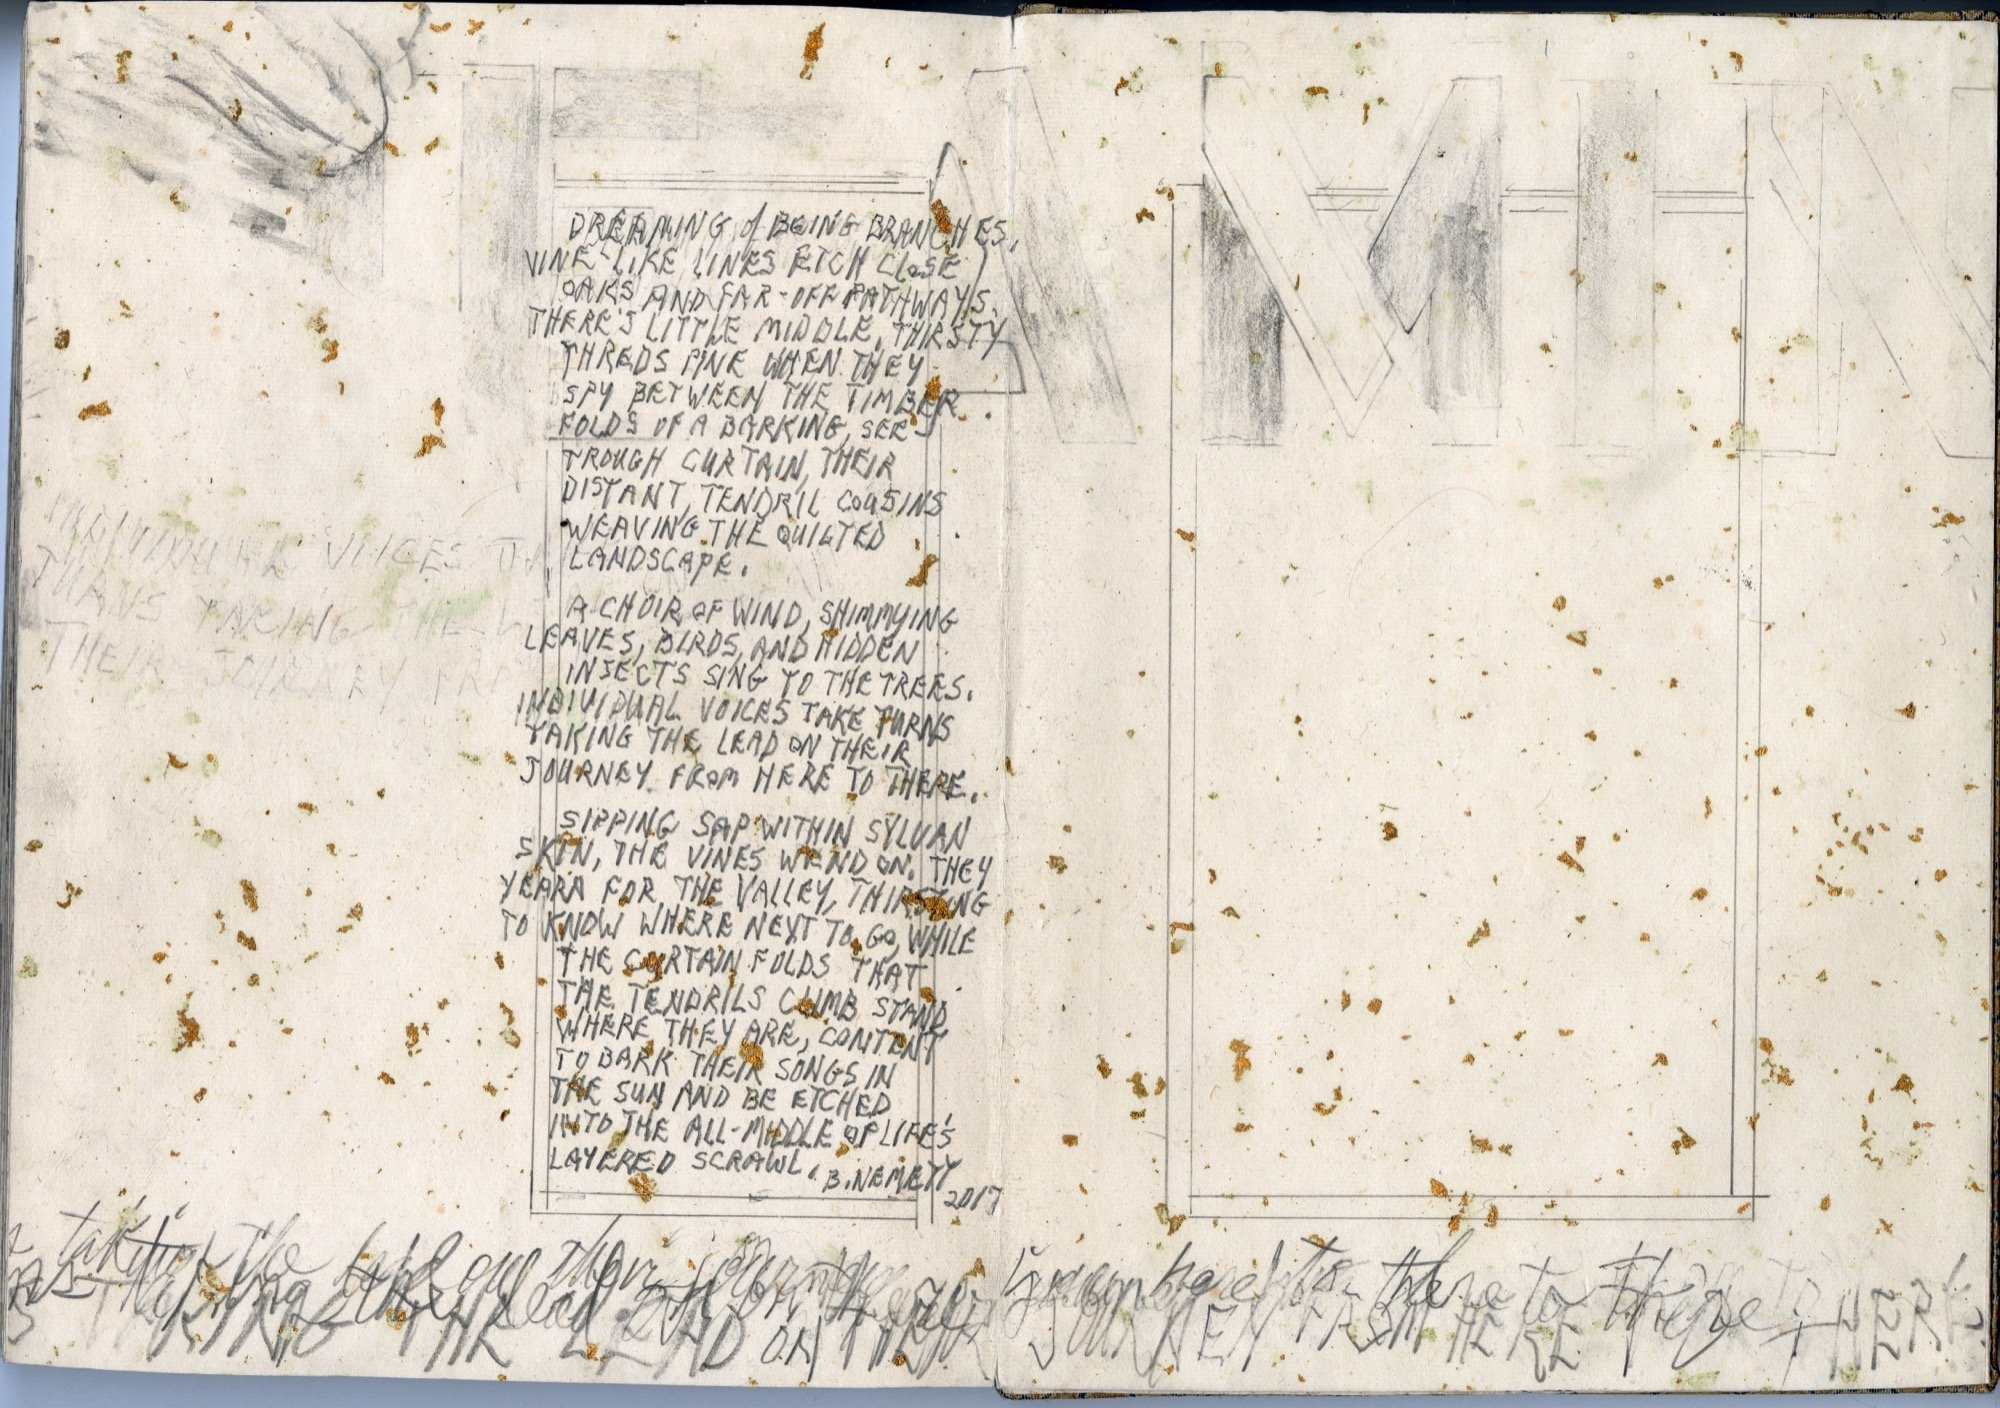 DREAMING of BEING BRANCHES,
VINE-LIKE LINES ETCH CLOSE
OAKS AND FAR-OFF PATHWAYS.
THERE'S LITTLE MIDDLE, THIRSTY
THREDS PINE WHEN THEY
SPY BETWEEN THE TIMBER
FOLDS OF A BARKING, SEE-
TROUGH CURTAIN, THEIR
DISTANT, TENDRIL COUSINS
WEAVING THE QUILTED
LANDSCAPE.
A CHOIR OF WIND, SHIMMYING
LEAVES, BIRDS, AND HIDDEN
INSECTS SING TO THE TREES.
INDIVIDUAL VOICES TAKE TURNS
TAKING THE LEAD ON THEIR
JOURNEY FROM HERE TO THERE.
SIPPING SAP WITHIN SYLVAN
SKIN, THE VINES WEND ON. THEY
YEARN FOR THE VALLEY, THIRSTING
TO KNOW WHERE NEXT TO GO, WHILE
THE CURTAIN FOLDS THAT
THE TENDRILS CLIMB STAND
WHERE THEY ARE, CONTENT
TO BARK THEIR SONGS IN
THE SUN AND BE ETCHED
INTO THE ALL-MIDDLE OF LIFE'S
LAYERED SCRAWL. B. NEMETY
2017
INDIVIDUAL VOICES
TURNS TAKING THE
THEIR JOURNEY
taking the lead on their journey
TAKING THE LEAD ON THEIR JOURNEY FROM HERE